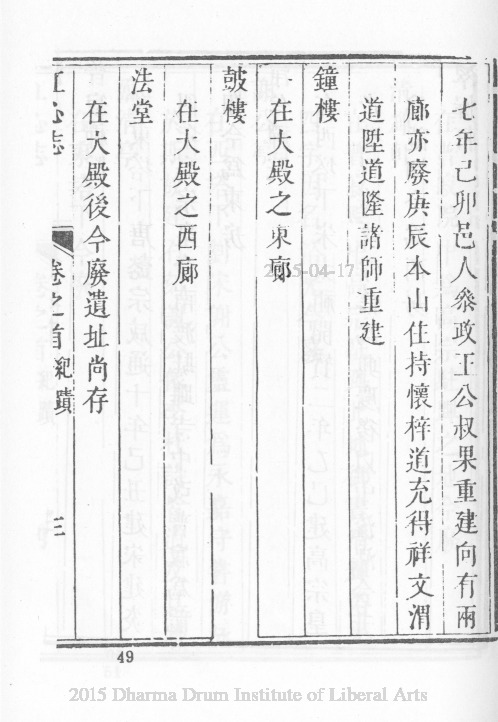 七年己卯邑人叅政王公叔果重建向有兩
廊亦廢庚辰本山住持懷梓道充得祥文渭
道陞道隆諸師重建
鐘樓
在大殿之東廊
鼓樓
在大殿之西廊
法堂
在大殿後今廢遺址尚存
江心志
卷之首 紀蹟
三
49
2015-04-17
2015 Dharma Drum Institute of Liberal Arts